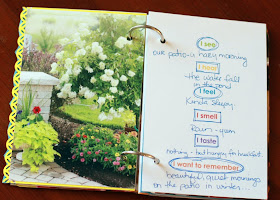 I see
our patio - a hazy morning
I hear
- the water fall
in the pond
I feel
Kinda sleepy
I smell
Rain - yum
I taste
nothing - but hungry for breakfast.
I want to remember
beautiful, quiet mornings
on the patio in winter.